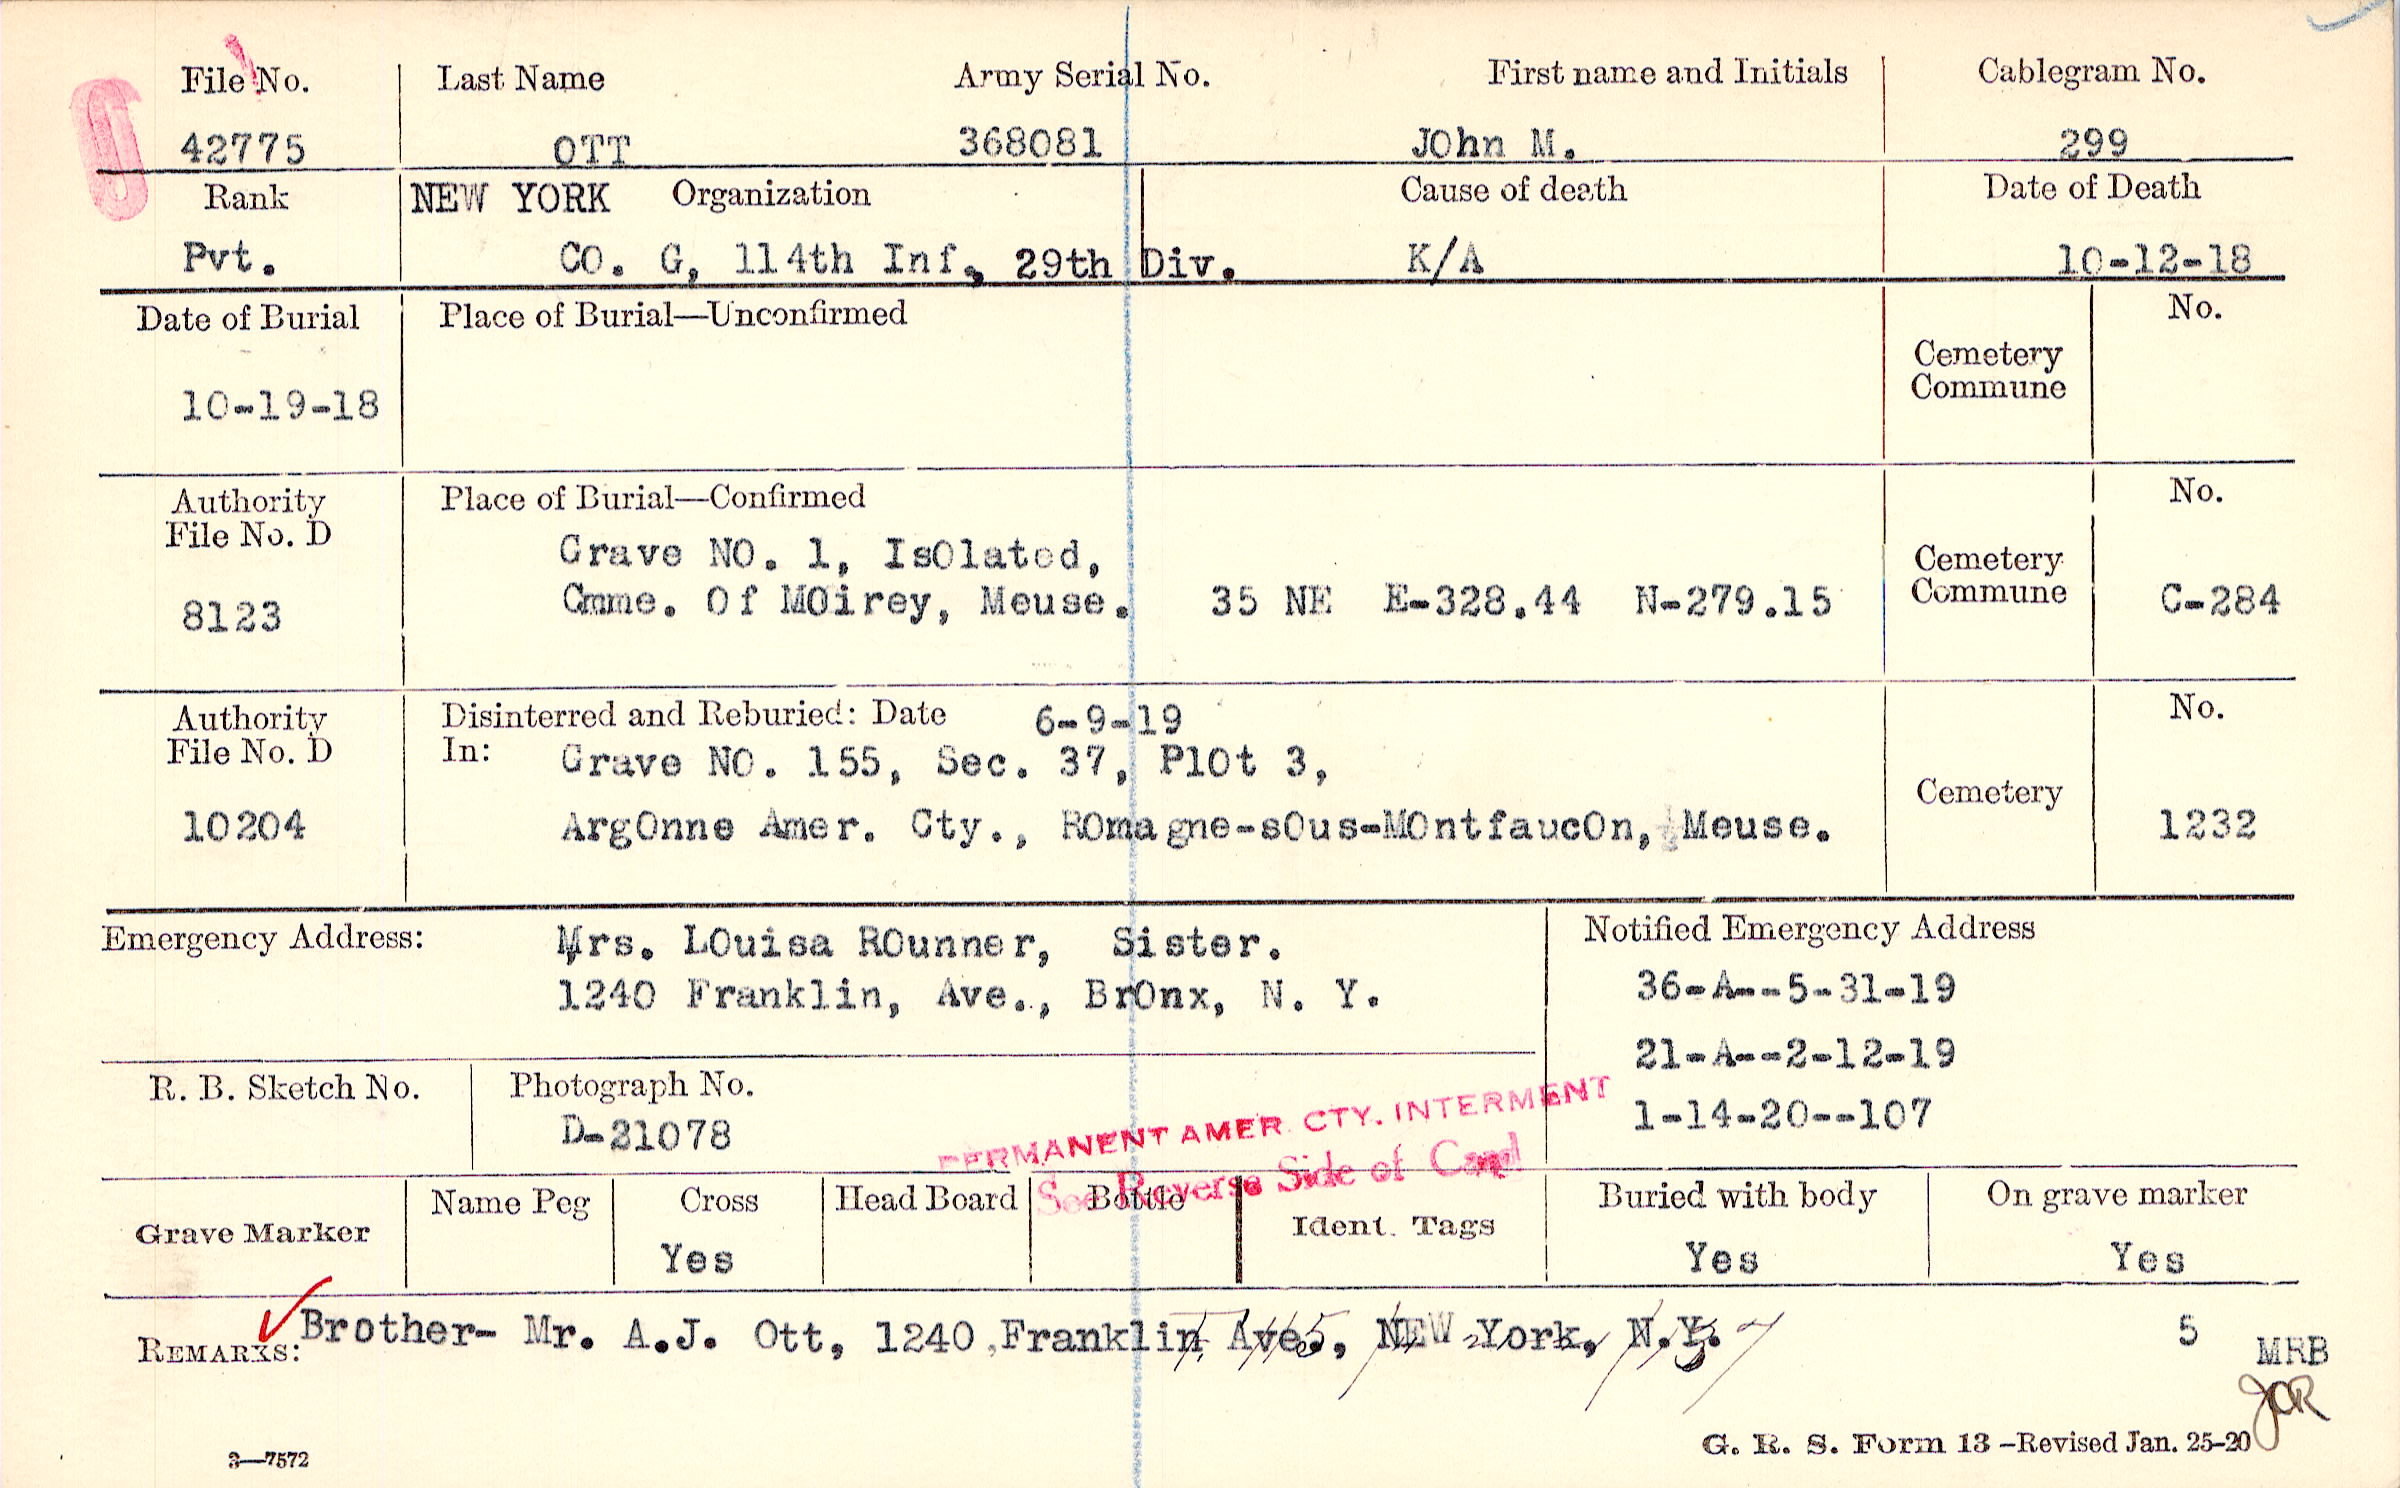 File No. Last Name Army Serial No. First name and Initials Cablegram No.
42775 OTT 368081 JOhn M. 299
Rank NEW YORK Organization Cause of death Date of Death
Pvt. CO. G, 114th Inf., 29th Div. K/A 10-12-18
Date of Burial Place of Burial—Unconfirmed No.
Cemetery
Commune
10-19-18
Authority Place of Burial—Confirmed No.
File No. D
Grave NO. 1, IsOlated,
Cemetery
Commune
8123 Cmme. Of MOirey, Meuse. 35 NE E-328.44 N-279.15 C-284
Authority Disinterred and Reburied: Date 6-9-19 No.
File No. D In: Grave NO. 155, Sec. 37, PlOt 3,
Cemetery
10204 ArgOnne Amer. Cty., ROmagne-sOus-MOntfaucOn, Meuse. 1232
Emergency Address: Mrs. LOuisa ROunner, Sister. Notified Emergency Address
1240 Franklin, Ave., BrOnx, N. Y. 36-A--5-31-19
21-A--2-12-19
R. B. Sketch No. Photograph No.
D-21078 1-14-20--107
PERMANENT AMER. CTY. INTERMENT
See Reverse Side of Card
Grave Marker Name Peg Cross Head Board Bottle Ident. Tags Buried with body On grave marker
Yes Yes Yes
REMARKS: Brother- Mr. A.J. Ott, 1240 Franklin Ave., NEW York, N.Y. 5
MRB
JCR
3—7572 G. R. S. Form 13 –Revised Jan. 25-20